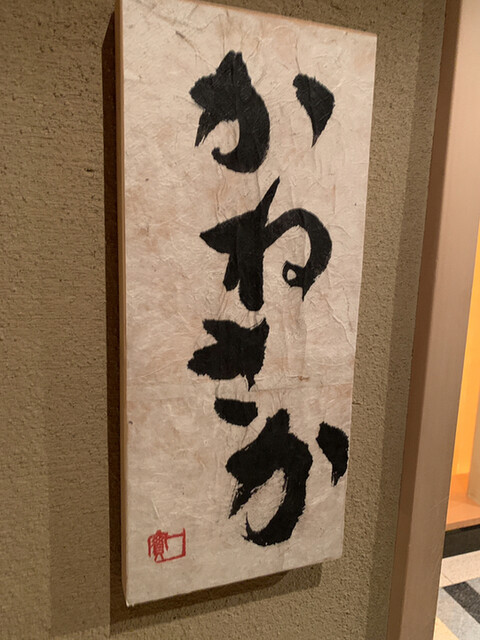 かねさか